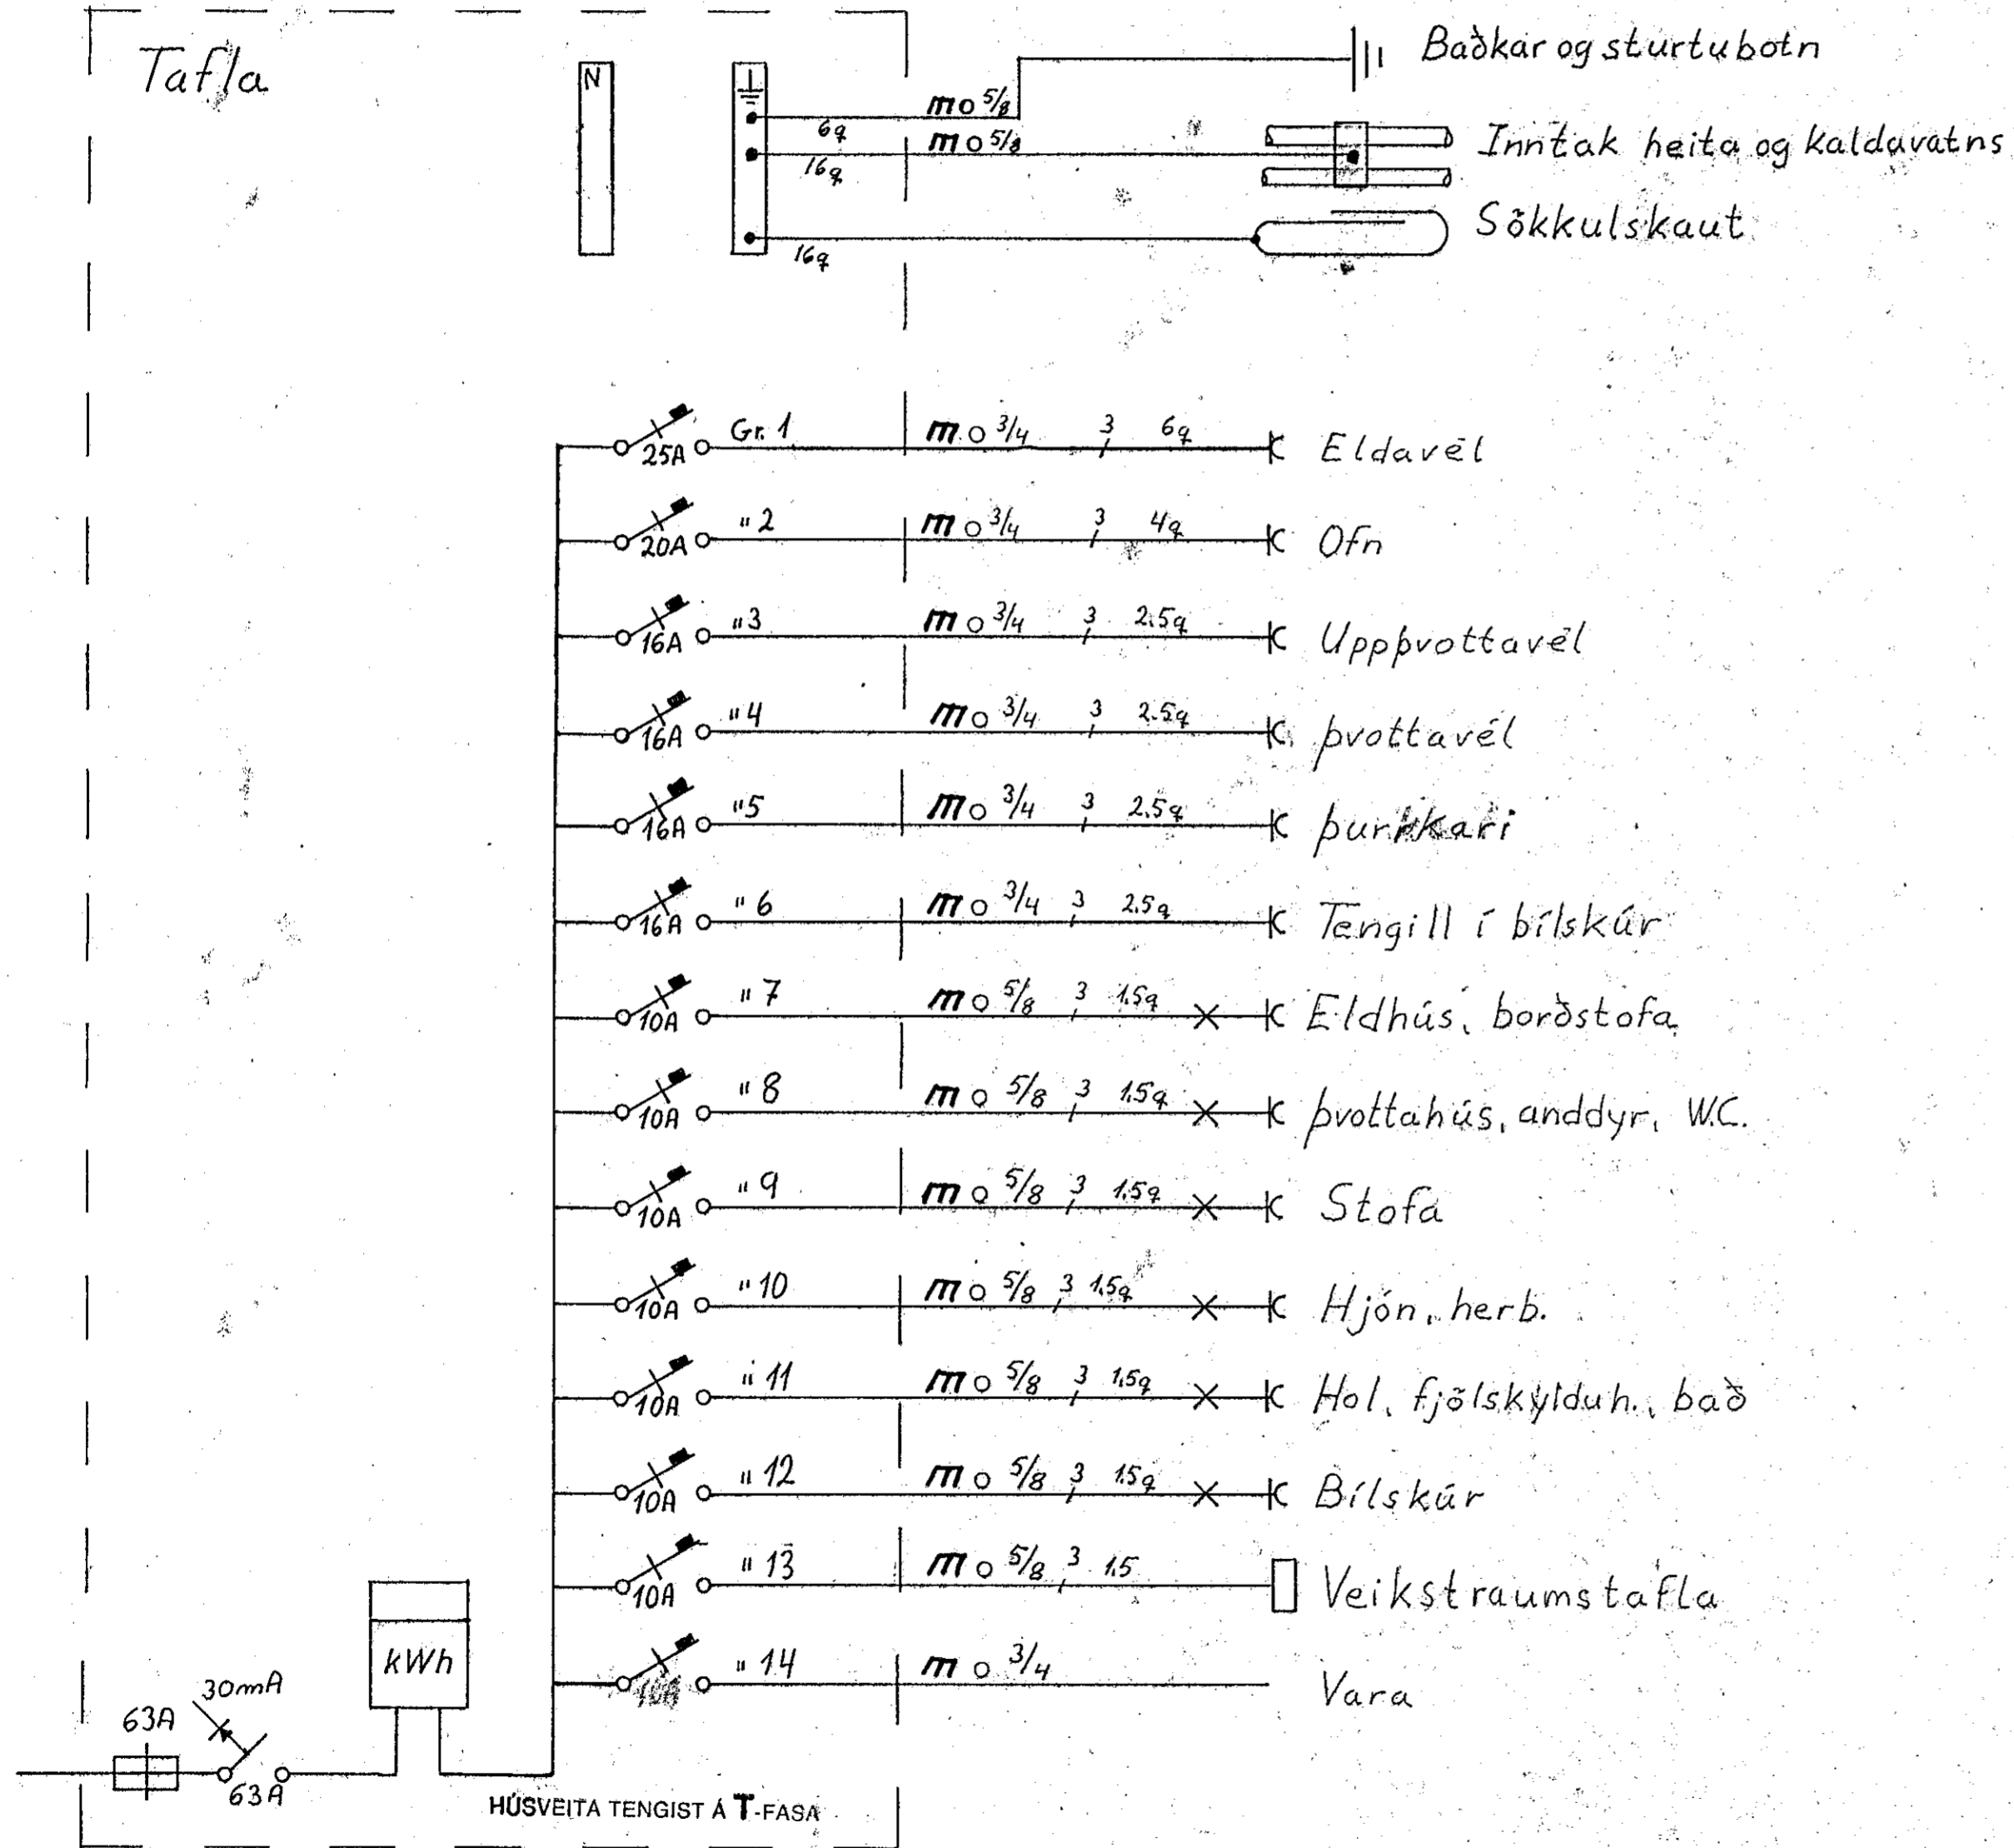 Tafla
N
Baðkar og sturtubotn
m o 5/8
6q
m o 5/8
16q
Inntak heita og kaldavatns
16q
Sökkulskaut
25A Gr. 1 m o 3/4 3 6q Eldavél
20A "2 m o 3/4 3 4q Ofn
16A "3 m o 3/4 3 2.5q Uppþvottavél
16A "4 m o 3/4 3 2.5q þvottavél
16A "5 m o 3/4 3 2.5q þurkkari
16A "6 m o 3/4 3 2.5q Tengill í bílskúr
10A "7 m o 5/8 3 1.5q Eldhús, borðstofa
10A "8 m o 5/8 3 1.5q þvottahús, anddyr, W.C.
10A "9 m o 5/8 3 1.5q Stofa
10A "10 m o 5/8 3 1.5q Hjón, herb.
10A "11 m o 5/8 3 1.5q Hol, fjölskylduh., bað
10A "12 m o 5/8 3 1.5q Bílskúr
10A "13 m o 5/8 3 1.5 Veikstraumstafla
10A "14 m o 3/4 Vara
kWh
30mA
63A
63A
HÚSVEITA TENGIST Á T-FASA